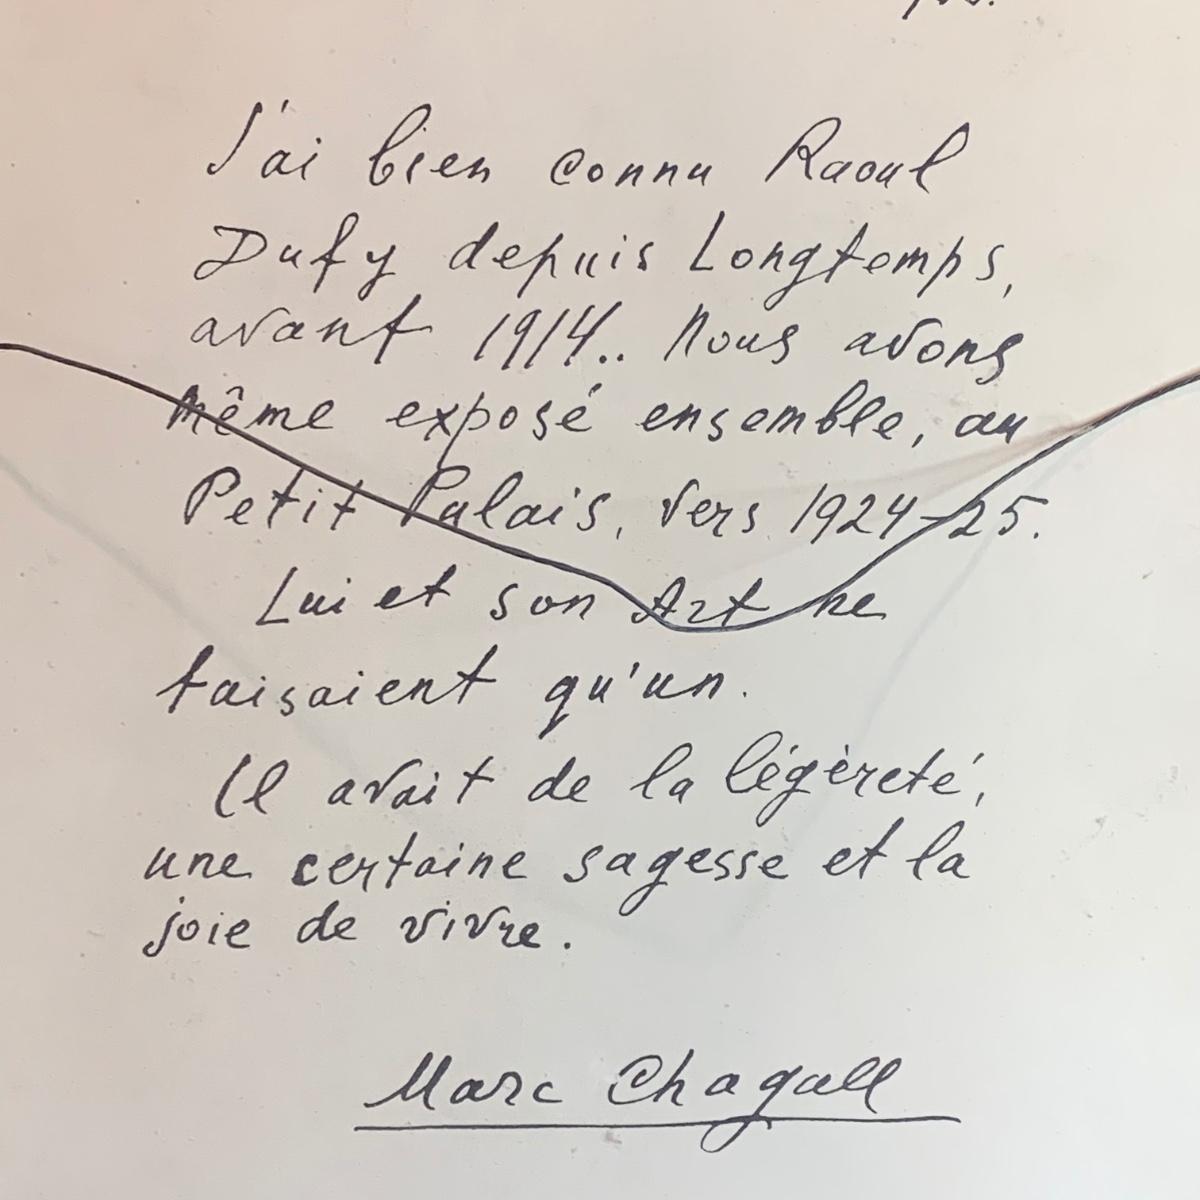 J'ai bien connu Raoul
Dufy depuis Longtemps,
avant 1914.. Nous avons
même exposé ensemble, au
Petit Palais, vers 1924-25.
Lui et son Art ne
faisaient qu'un.
Il avait de la légèreté,
une certaine sagesse et la
joie de vivre.
Marc Chagall